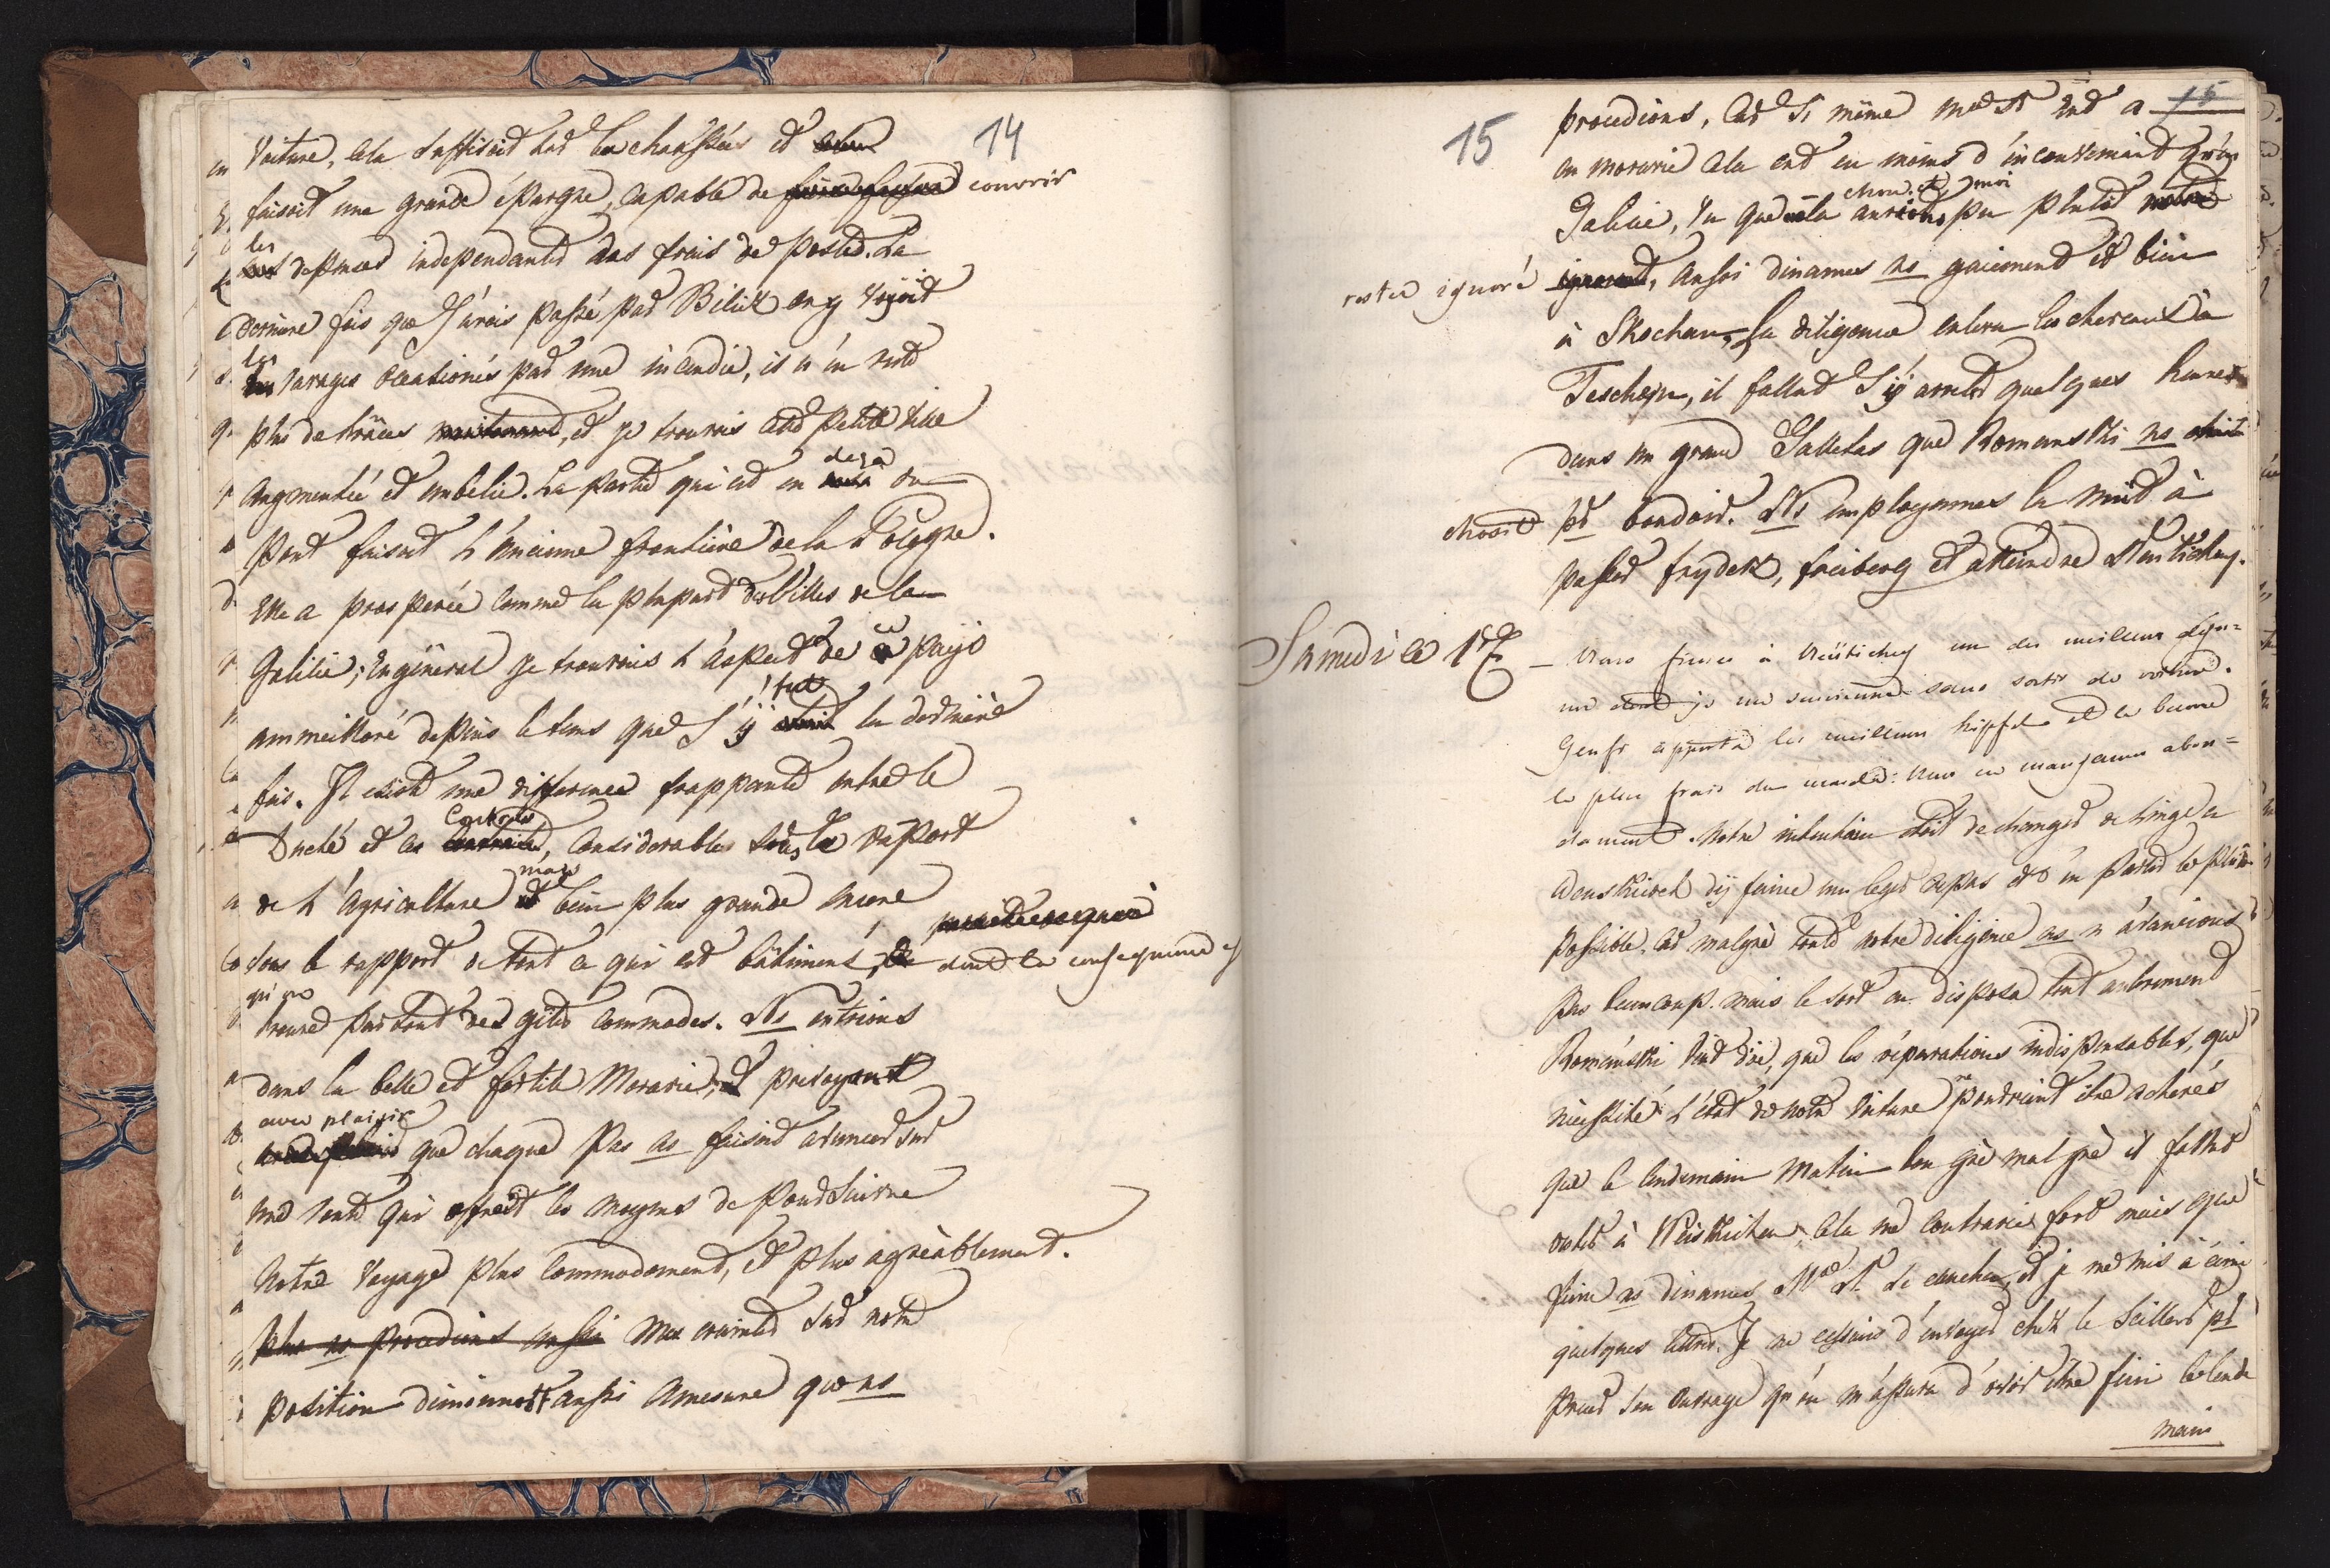 14
Voiture, cela suffisoit sur les chaussées et
faisoit une grande épargne, capable de couvrir
les depences independantes des frais de postes. La
derniere fois que j'avois passé par Bilitz on y voyoit
les ravages occationés par une incendie, il n'en reste
plus de traces maintenant, et je trouvois cette petite ville
augmentée et embelie. La partie qui est en deça du
Pont faisoit l'ancienne frontière de la Pologne.
Elle a prosperée comme la plupart des Villes de la
Galicie; en géneral je trouvois l'aspect de ce pays
ammeilloré depuis le tems que j'y fut la derniere
fois. Il existe une difference frappante entre le
Duché et les Contrées, considerables sous le raport
de l'agriculture mais bien plus grande encore
sous le rapport de tout ce qui est bâtiment, dont la consequence est
qu'on
trouve partout des gites commodes. Ns entrions
dans la belle et fertile Moravie, et prevoyant
avec plaisir que chaque pas ns faisoit avancer sur
une route qui offroit les moyens de poursuivre
notre voyage plus commodement, et plus agréablement.
Plus ns procedions aussi mes craintes sur notre
position diminuoit aussi a mesure que ns
15
procedions, car si même
en Moravie cela est en moins d'inconvenient qu'en
Galicie, vu que cela chez moi pu plutot
rester ignoré, aussi dinames ns gaiement et bien
à Skochau, la diligence enleva les chevaux à
Teschen, il fallut s'y arreter quelques heures
dans un grand Galletas que Romanski ns
choisit pr boudoir. Ns employames la nuit à
passer Frydek, Freiberg et atteindre Neutitschey.
Samedi le 17 — Nous fimes à Neütichey un des meilleurs dejeu=
ne dont je me suvienne sans sortir de voiture.
Genfr apporta les meilleurs kipfel et le beurre
le plus frais du monde: Nous en mangeames abon=
dament. Notre intention etoit de changer de linge a
Weiskirch d'y faire un leger repas et d'en partir le plutôt
possible, car malgré toute notre diligence ns n'avancions
pas beaucoup. mais le sort en disposa tout autrement
Romanski vint dire, que les réparations indispensables, que
necessité l'état de notre voiture ne pouvoient être achevés
que le lendemain Matin bon gré mal gré il fallut
rester à Weiskirchen. Cela me contraria fort mais que
faire ns dinames Made St. se coucha, et je me mis à écrire
quelques lettres. Je ne cessois d'envoyer chez le Sellier pr
presser son ouvrage qu'on m'assura d'voir être fini le lende
main